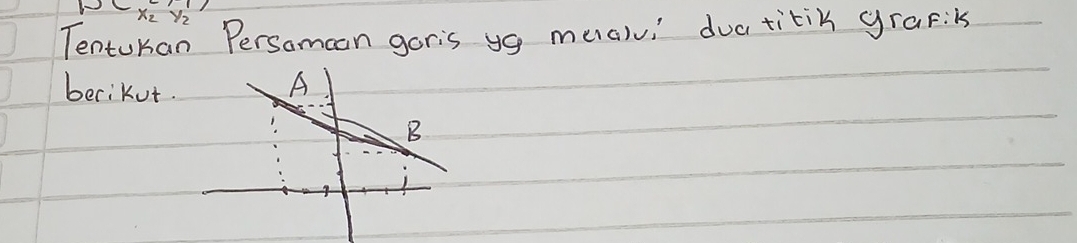 x2 y2
Tentukan Persamaan garis yg melalui dua titik grafik
berikut.
A
B